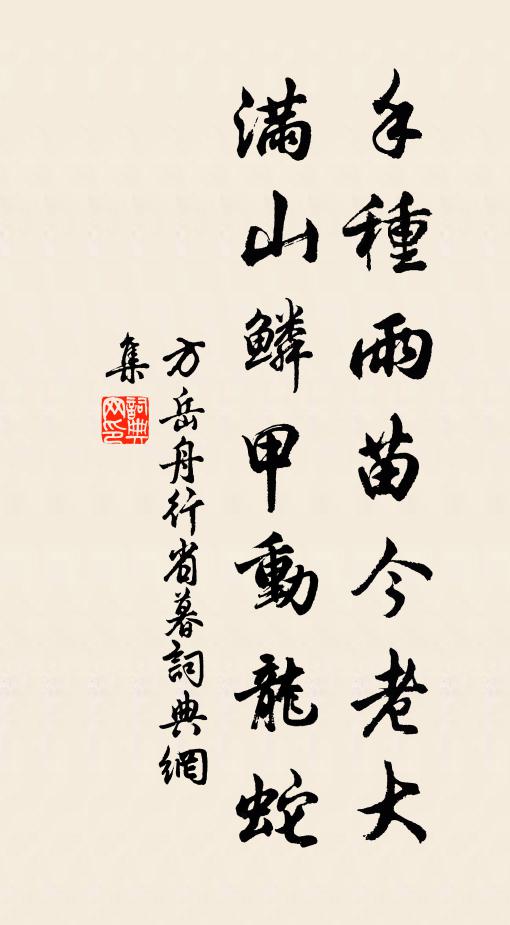 手種雨苗今老大
滿山鱗甲動龍蛇
方岳舟行省墓詞典網
集
詞典網印